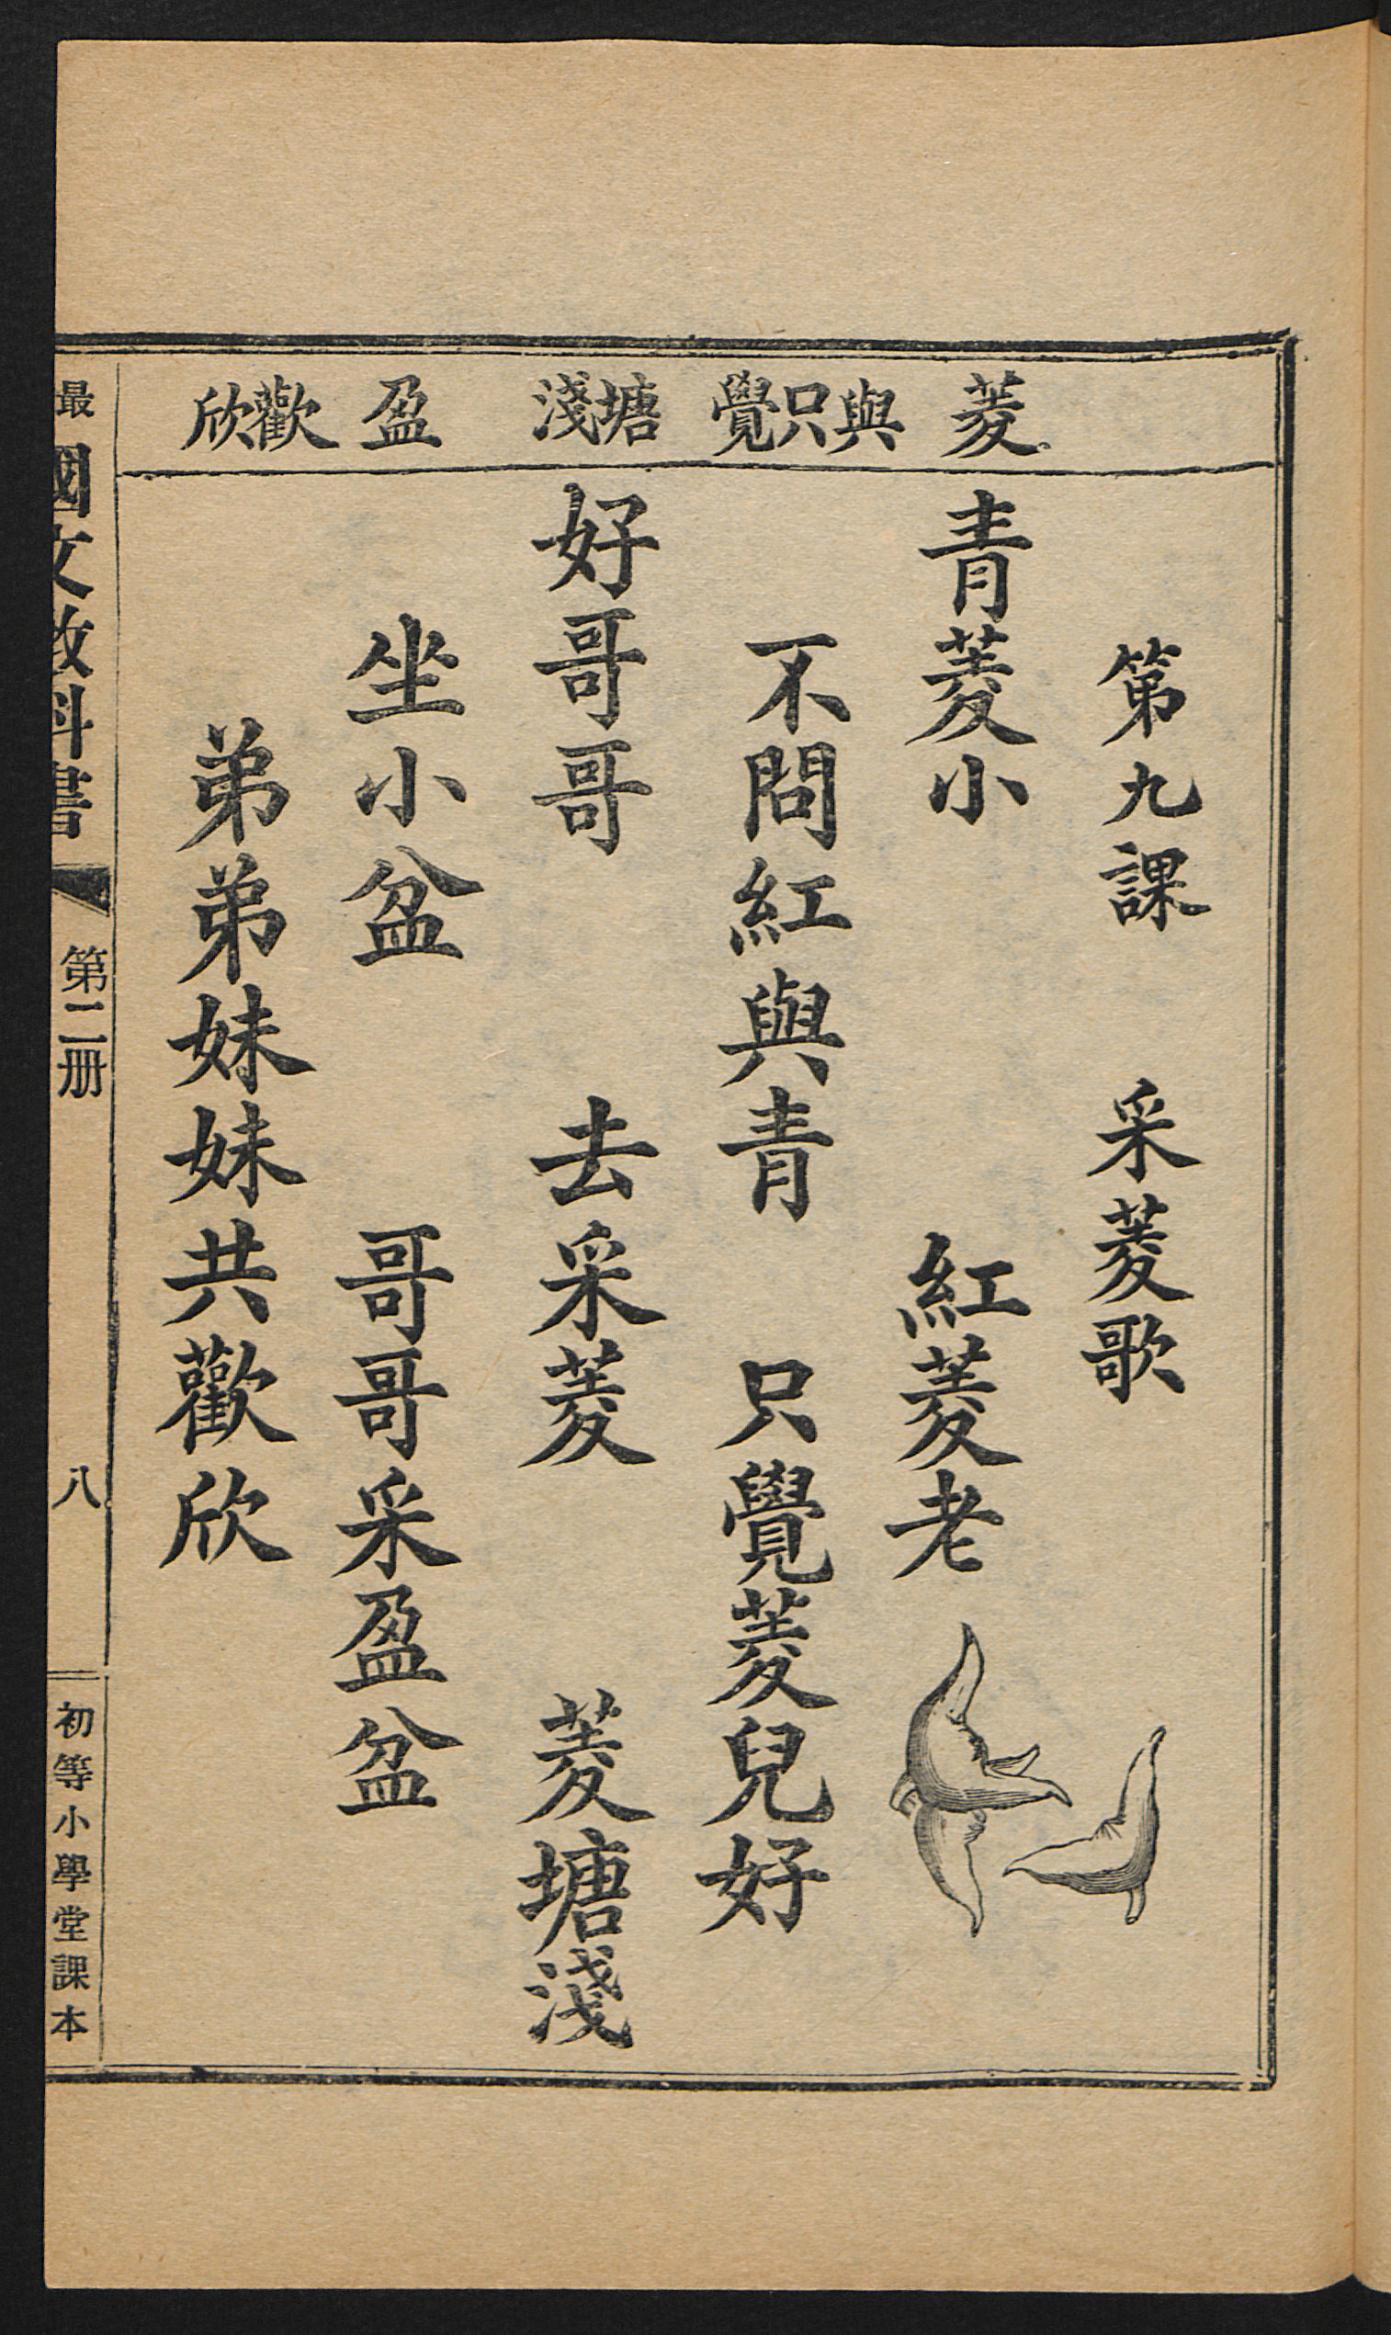 菱
與只覺
塘淺
盈
歡欣
第九課　采菱歌
青菱小　紅菱老
不問紅與青　只覺菱兒好
好哥哥　去采菱　菱塘淺
坐小盆　哥哥采盈盆
弟弟妹妹共歡欣
最
國文教科書
第二册
八
初等小學堂課本